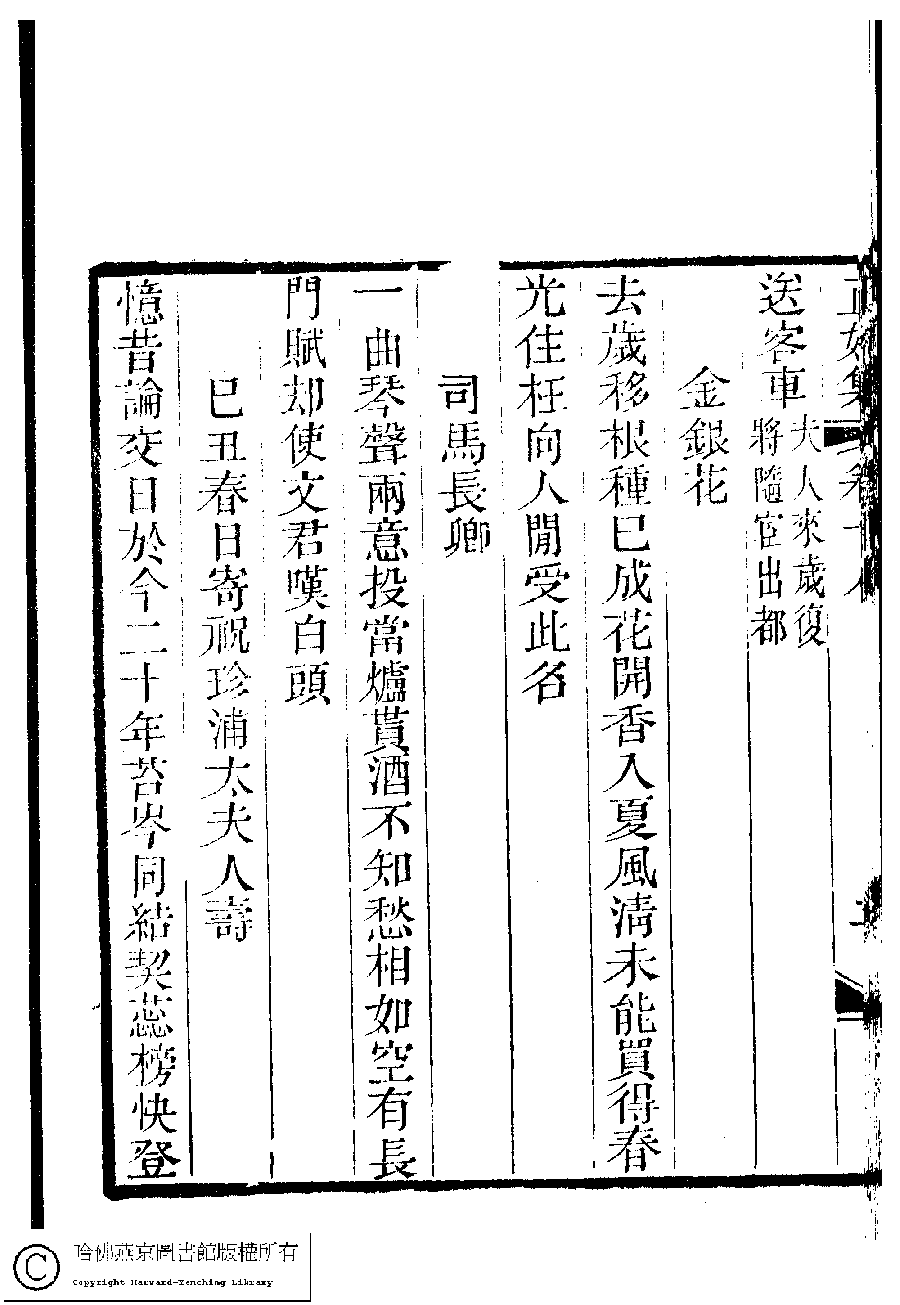 送客車夫人來歲復
將隨宦出都
金銀花
去歲移根種已成花開香入夏風清未能買得春
光住枉向人閒受此名
司馬長卿
一曲琴聲兩意投當爐貰酒不知愁相如空有長
門賦却使文君嘆白頭
巳丑春日寄祝珍浦太夫人壽
憶昔論交日於今二十年苔岑同結契蕊榜快登
哈佛燕京圖書館版權所有
Copyright Harvard-Yenching Library